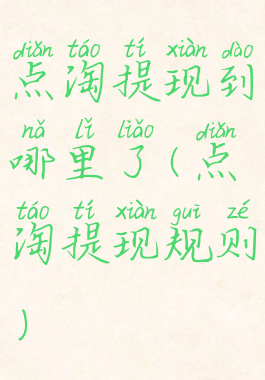 diǎn táo tí xiàn dào
点淘提现到
nǎ lǐ liǎo diǎn
哪里了(点
táo tí xiàn guī zé
淘提现规则
)